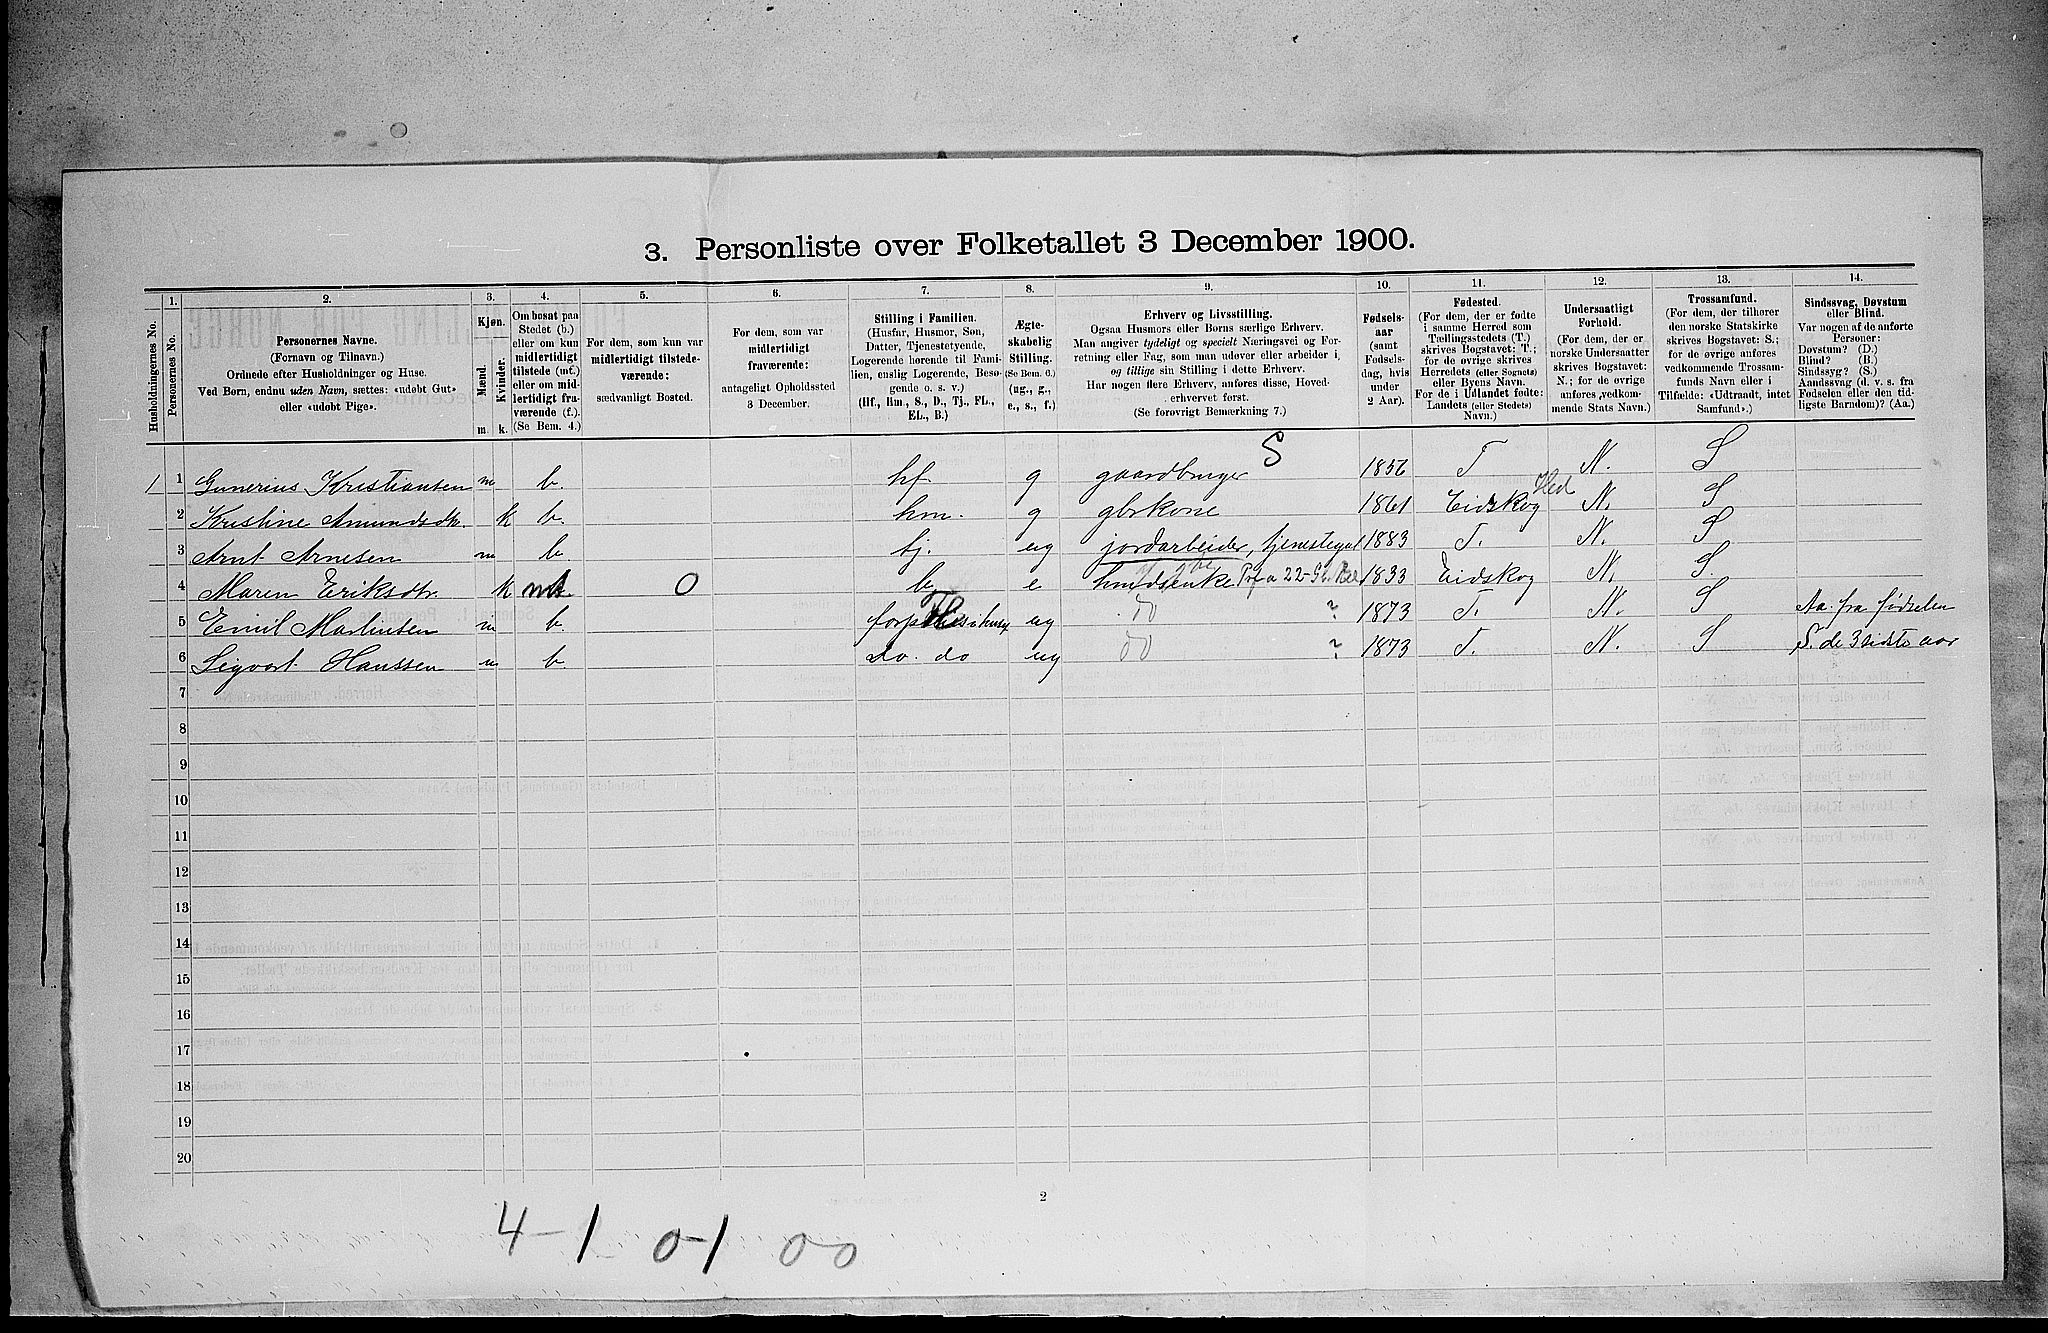 3. Personliste over Folketallet 3 December 1900.
1. 2. 3. 4. 5. 6. 7. 8. 9. 10. 11. 12. 13. 14.
Husholdningernes No.
Personernes No.
Personernes Navne.
(Fornavn og Tilnavn.)
Ordnede efter Husholdninger og Huse.
Ved Børn, endnu uden Navn, sættes: «udøbt Gut»
eller «udøbt Pige».
Kjøn.
Mænd.
Kvinder.
m. k.
Om bosat paa
Stedet (b.)
eller om kun
midlertidigt
tilstede (mt.)
eller om mid-
lertidigt fra-
værende (f.).
(Se Bem. 4.)
For dem, som kun var
midlertidigt tilstede-
værende:
sædvanligt Bosted.
For dem, som var
midlertidigt
fraværende:
antageligt Opholdssted
3 December.
Stilling i Familien.
(Husfar, Husmor, Søn,
Datter, Tjenestetyende,
Logerende hørende til Fami-
lien, enslig Logerende, Besø-
gende o. s. v.)
(Hf., Hm., S., D., Tj., FL.,
EL., B.)
Ægte-
skabelig
Stilling.
(Se Bem. 6.)
(ug., g.,
e., s., f.)
Erhverv og Livsstilling.
Ogsaa Husmors eller Børns særlige Erhverv.
Man angiver tydeligt og specielt Næringsvei og For-
retning eller Fag, som man udøver eller arbeider i,
og tillige sin Stilling i dette Erhverv.
Har nogen flere Erhverv, anføres disse, Hoved-
erhvervet først.
(Se forøvrigt Bemærkning 7.)
Fødsels-
aar
(samt
Fødsels-
dag, hvis
under
2 Aar).
Fødested.
(For dem, der er fødte
i samme Herred som
Tællingsstedets (T.)
skrives Bogstavet: T.;
for de øvrige skrives
Herredets (eller Sognets)
eller Byens Navn.
For de i Udlandet fødte:
Landets (eller Stedets)
Navn.)
Undersaatligt
Forhold.
(For dem, der er
norske Undersaatter
skrives Bogstavet:
N.; for de øvrige
anføres vedkom-
mende Stats Navn.)
Trossamfund.
(For dem, der tilhører
den norske Statskirke
skrives Bogstavet: S.;
for de øvrige anføres
vedkommende Trossam-
funds Navn eller i
Tilfælde: «Udtraadt, intet
Samfund».)
Sindssvag, Døvstum
eller Blind.
Var nogen af de anførte
Personer:
Døvstum? (D.)
Blind? (B.)
Sindssyg? (S.)
Aandssvag (d. v. s. fra
Fødselen eller den tid-
ligste Barndom)? (Aa.)
S
1 1 Gunerius Kristiansen m b. hf. g gaardbruger 1856 T N. S
Hed
2 Kristine Amundsdtr. k b. hm. g gbrkone 1861 Eidskog N. S
3 Arnt Arnesen m b tj. ug jordarbeider, tjenestegut 1883 T. N. S
4 Maren Eriksdtr. k mt. O b e 1833 Eidskog N. S.
5 Emil Martinsen m b. ug ? 1873 T. N. S Aa. fra fødselen
6 Sigvart Hanssen m b do. do ug ? 1873 T. N. S S. de 3 sidste aar
7
8
9
10
11
12
13
14
15
16
17
18
19
20
2
4-1 0-1 0-0